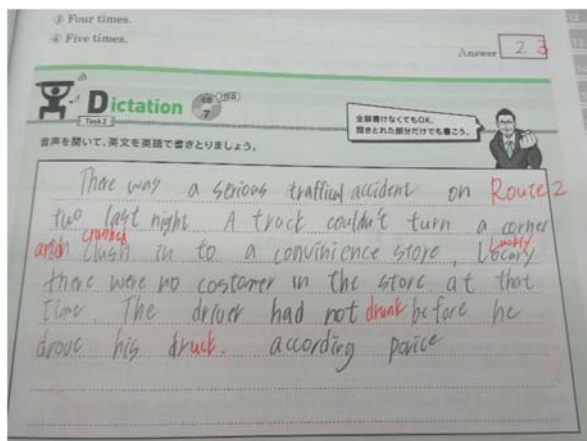 ③ Four times.
④ Five times.
Answer 2 3
Dictation CD 7
Task 2
全部書けなくてもOK。
聞きとれた部分だけでも書こう。
音声を聞いて、英文を英語で書きとりましょう。
There was a serious traffical accident on Route 2
two last night. A truck couldn't turn a corner
crashed
and clush in to a convinience store, Locary
Luckly
there were no costomer in the store at that
time. The driver had not drunk before he
drove his druck. according porice